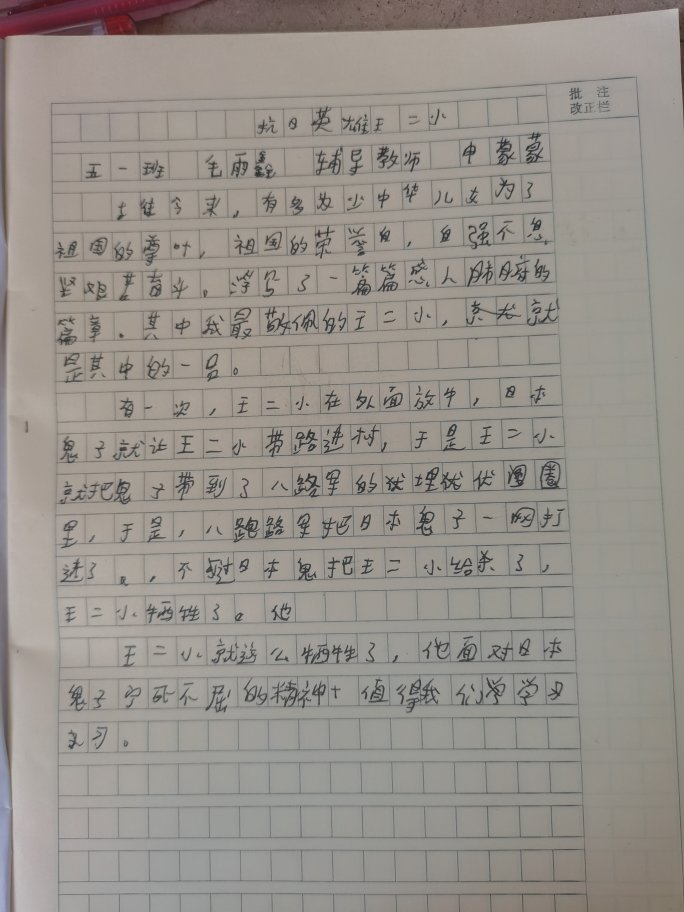 批 注
改正栏
抗日英雄王二小
五一班 毛雨鑫 辅导教师 申蒙蒙
古往今来，有多少中华儿女为了
祖国的尊叶，祖国的荣誉，自强不息，
坚如奋斗。谱写了一篇篇感人肺府的
篇章。其中我最敬佩的王二小，就
是其中的一名。
有一次，王二小在外面放牛，日本
鬼子就让王二小带路进村，于是王二小
就把鬼子带到了八路军的埋伏圈
里，于是，八路军把日本鬼子一网打
进了。，不过日本鬼把王二小给杀了，
王二小牺牲了。他
王二小就这么牺牲了，他面对日本
鬼子宁死不屈的精神值得我们学学习
习。